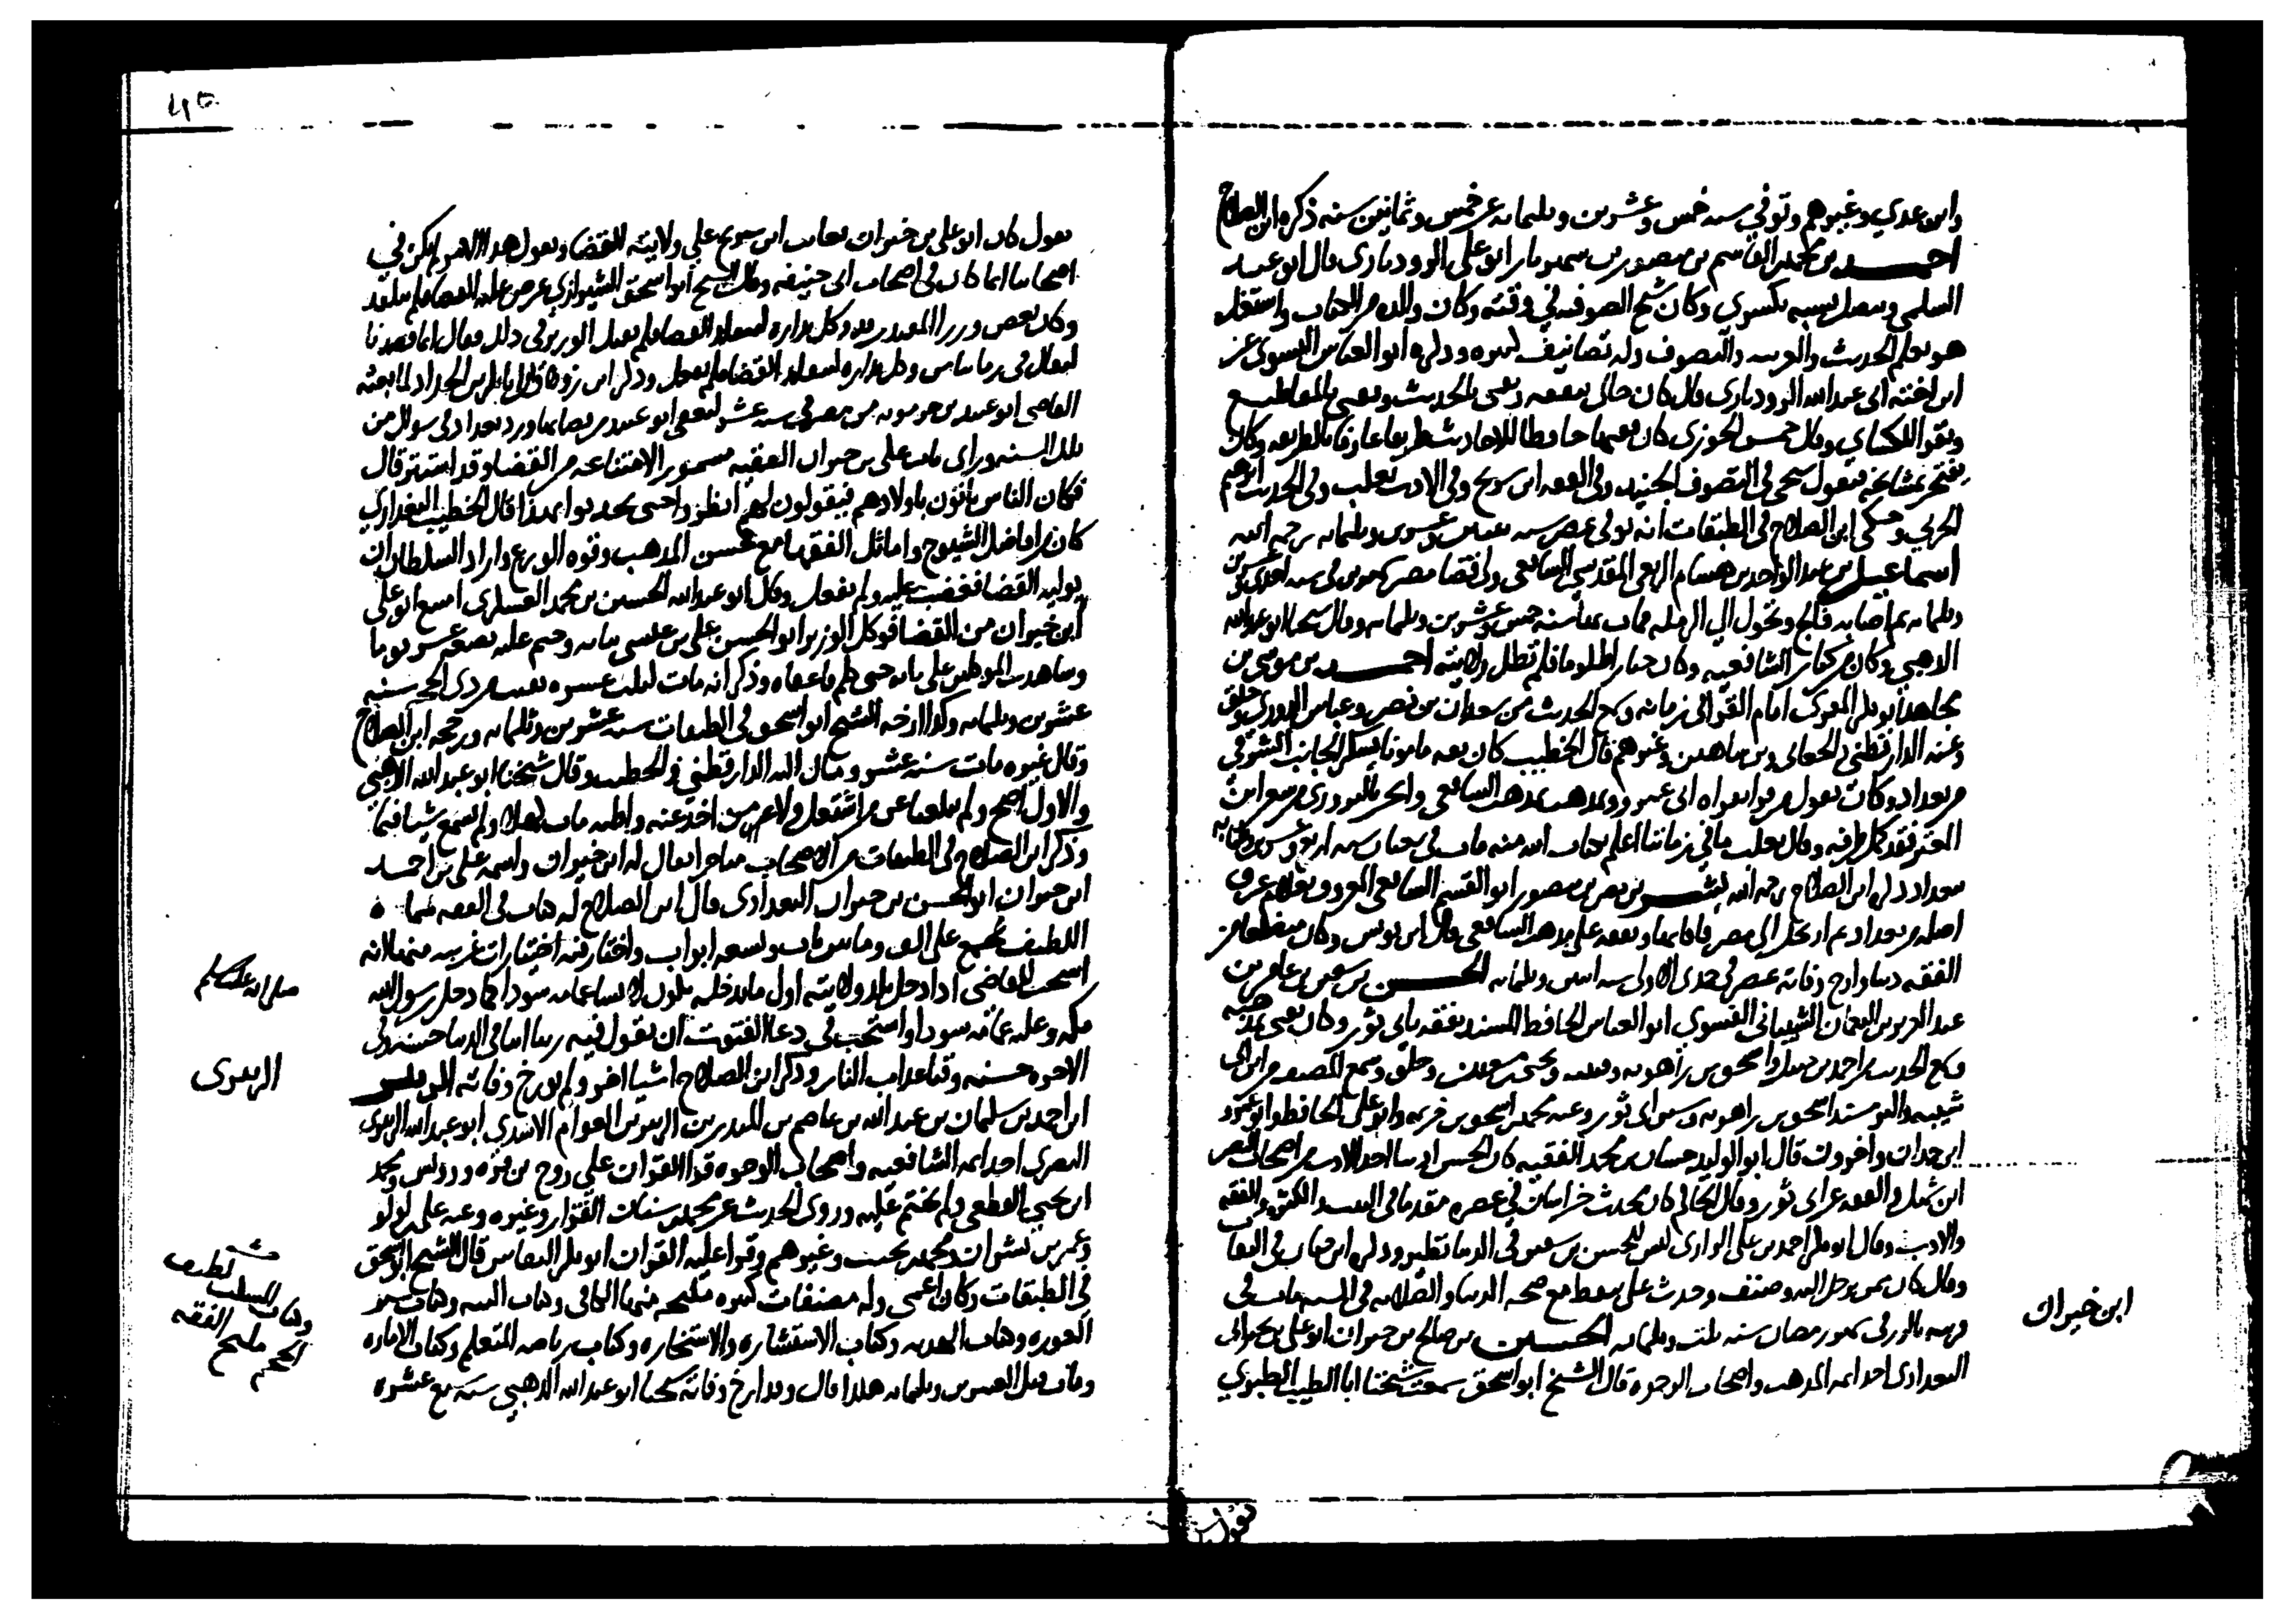 وابن عدي وغيرهم وتوفي سنه خمس وعشرين وثلثمايه عن خمس وثمانين سنه ذكره ابن الصلاح
احمد بن محمد بن القاسم بن منصور بن شهريار ابو على الرودبارى قال ابو عبد
السلمى ويتصل نسبه بكسرى وكان شيخ الصوفيه في وقته وكان والده من الكتاب واشتغل
هو بعلم الحديث والعربيه والتصوف وله تصانيف كثيره وذكره ابو العباس النسوى عن
ابن اخته ابى عبد الله الرودبارى قال كان خالى يتفقه يعنى بالحديث ويفتى بالمقاطيع
ويقرا للكساى وقال حسن الجوزى كان فقيها حافظا للاحاديث ظريفا عارفا بالطريقه وكان
يفتخر بمشايخه فيقول شيخى في التصوف الجنيد وفى الفقه ابن سريج وفى الادب ثعلب وفى الحديث ابرهيم
الحربي وحكى ابن الصلاح في الطبقات انه توفى بمصر سنه اثنتين وعشرين وثلثمايه رحمه الله
اسماعيل بن عبد الواحد بن هشام الربعى المقدسي الشافعى ولى قضا مصر شهرين في سنه احدى وعشرين
وثلثمايه ثم اصابه فالج وتحول الى الرمله فمات بها سنه خمس وعشرين وثلثمايه وقال شيخنا ابو عبد الله
الذهبى وكان من كبار الشافعيه وكان جبارا ظلوما فلم تطل ولايته احمد بن موسى بن
مجاهد ابو بكر المقرى امام القرا في زمانه وسمع الحديث من سعدان بن نصر وعباس الدورى وخلق
وعنه الدارقطنى والجعابى وابن شاهين وغيرهم قال الخطيب كان ثقه مامونا يسكن الجانب الشرقي
من بغداد وكان يقول من قرا بقراه ابى عمرو وتمذهب بمذهب الشافعى واتجر بالبز وروى من شعر ابن
المعتز فقد كمل ظرفه وقال ثعلب ما في زماننا اعلم بكتاب الله منه مات في شعبان سنه اربع وعشرين وثلثمايه
ببغداد ذكره ابن الصلاح رحمه الله بشر بن نصر بن منصور ابو القسم الشافعى المعروف بغلام عرق
اصله من بغداد ثم ارتحل الى مصر فاقام بها وتفقه على مذهب الشافعى قال ابن يونس وكان متضلعا من
الفقه دينا وارخ وفاته بمصر في جمدى الاولى سنه اثنتين وثلثمايه الحسن بن سفين بن عامر بن
عبد العزيز بن النعمان الشيبانى الفسوى ابو العباس الحافظ المسند تفقه بابى ثور وكان يفتى بمذهبه
وسمع الحديث من احمد بن حنبل واسحق بن راهويه وقتيبه ويحيى بن معين وخلق وسمع المصنف من ابن ابى
شيبه والمسند من اسحق بن راهويه والسنن من ابى ثور وعنه محمد بن اسحق بن خزيمه وابو على الحافظ وابو عمرو
ابن حمدان واخرون قال ابو الوليد حسان بن محمد الفقيه كان الحسن اديبا اخذ الادب من اصحاب النضر
ابن شميل والفقه عن ابى ثور وقال الحاكم كان محدث خراسان في عصره متقدما في الثبت والكثره والفقه
والادب وقال ابو بكر احمد بن على الرازى ليس للحسن بن سفين في الدنيا نظير وذكره ابن حبان في الثقات
وقال كان ممن رحل اليه وصنف وحدث على تيقظ مع صحه الديانه والصلابه في السنه مات في
قريه بالوز في شهر رمضان سنه ثلث وثلثمايه الحسين بن صالح بن خيران ابو على بن خيران
البغدادى احد ايمه المذهب واصحاب الوجوه قال الشيخ ابو اسحق سمعت شيخنا ابا الطيب الطبري
ابن خيران
يقول
يقول كان ابو على بن خيران يعاتب ابن سريج على ولايته للقضا ويقول هذا الامر لم يكن في
اصحابنا انما كان في اصحاب ابى حنيفه وقال الشيخ ابو اسحق الشيرازي عرض عليه القضا فلم يتقلد
وكان بعض وزرا المقتدر بالله وكل بداره ليتقلد القضا فلم يقبل الوزير في ذلك فقال انما قصدنا
ليقال في زماننا من وكل بداره ليتقلد القضا فلم يفعل وذكر ابن زولاق ان ابا بكر بن الحداد لما بعثه
القاضى ابو عبيد بن حربويه من مصر في سنه عشر ليعفى ابو عبيد من قضايها ورد بغداد في شوال من
تلك السنه وراى باب على بن خيران الفقيه مسمور الامتناعه من القضا وقد استتر قال
فكان الناس ياتون باولادهم فيقولون لهم انظروا حتى تحدثوا بهذا قال الخطيب البغدادي
كان من افاضل الشيوخ واماثل الفقها مع حسن المذهب وقوه الورع واراد السلطان ان
يوليه القضا فغضب عليه ولم يفعل وقال ابو عبد الله الحسين بن محمد العسكرى امتنع ابو على
ابن خيران من القضا فوكل الوزير ابو الحسن على بن عيسى ببابه وختم عليه بضعه عشر يوما
وشاهدت الموكلين على بابه حتى كلم فاعفاه وذكر انه مات لثلث عشره بقيت من ذى الحجه سنه
عشرين وثلثمايه وكذا ارخه الشيخ ابو اسحق في الطبقات سنه عشرين وثلثمايه ورجحه ابن الصلاح
وقال غيره مات سنه عشر ومال اليه الدارقطني والخطيب وقال شيخنا ابو عبد الله الذهبي
والاول اصح ولم يبلغنا عن من اشتغل ولا عن من اخذ عنه واظنه مات كهلا ولم يسمع شيا فيما
وذكر ابن الصلاح في الطبقات من الاصحاب متاخرا يقال له ابن خيران واسمه على بن احمد
ابن خيران ابو الحسن بن خيران البغدادى قال ابن الصلاح له كتاب في الفقه سماه
اللطيف يجمع على الف ومايتى باب وتسعه ابواب واختار فيه اختيارات غريبه منها انه
استحب للقاضى اذا دخل بلد ولايته اول ما يدخله يكون لابسا عمامه سودا كما دخل رسول الله
صلى الله عليه وسلم
مكه وعليه عمامه سودا واستحب في دعا القنوت ان يقول فيه ربنا اتنا في الدنيا حسنه وفى
الاخره حسنه وقنا عذاب النار وذكر ابن الصلاح اشيا اخر ولم يورخ وفاته الزبير
الزبيرى
ابن احمد بن سلمان بن عبد الله بن عاصم بن المنذر بن الزبير بن العوام الاسدي ابو عبد الله الزبيرى
البصرى احد ايمه الشافعيه واصحاب الوجوه قرا القران على روح بن قره ورويس ومحمد
ابن يحيى القطعى ولم يختم عليه وروى الحديث عن محمد بن سنان القزاز وغيره وعنه على بن لولو
وعمر بن بشران ومحمد بن بخيت وغيرهم وقرا عليه القران ابو بكر النقاش قال الشيخ ابو اسحق
في الطبقات وكان اعمى وله مصنفات كثيره مليحه منها الكافى وكتاب النيه وكتاب ستر
العوره وكتاب الهديه وكتاب الاستشاره والاستخاره وكتاب رياضه المتعلم وكتاب الاماره
ومات قبل العشرين وثلثمايه هكذا قال وقد ارخ وفاته شيخنا ابو عبد الله الذهبي سنه سبع عشره
لطيف
وكتاب
مليح الفقه
الحجم